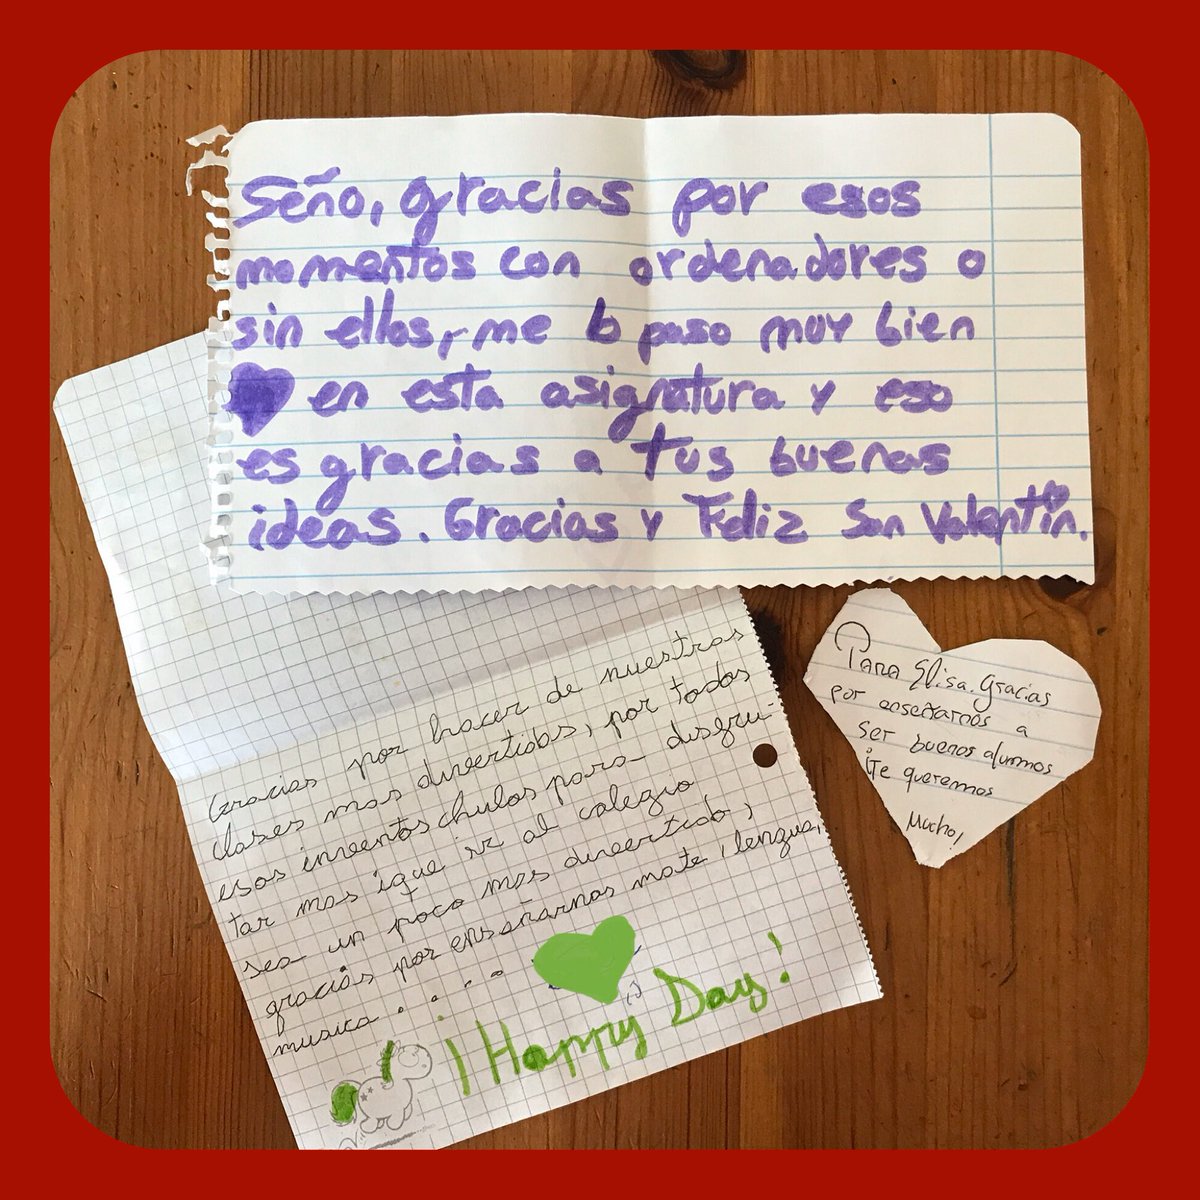 Seño, gracias por esos
momentos con ordenadores o
sin ellos, me lo paso muy bien
en esta asignatura y eso
es gracias a tus buenas
ideas. Gracias y Feliz San Valentín.
Gracias por hacer de nuestras
clases mas divertidas, por todos
esos inventos chulos para disfru-
tar mas i que ir al colegio
sea un poco mas divertido,
gracias por enseñarnos mate, lengua,
musica....
¡Happy Day!
Para Elisa. Gracias
por enseñarnos a
ser buenos alumnos
¡Te queremos
Mucho!